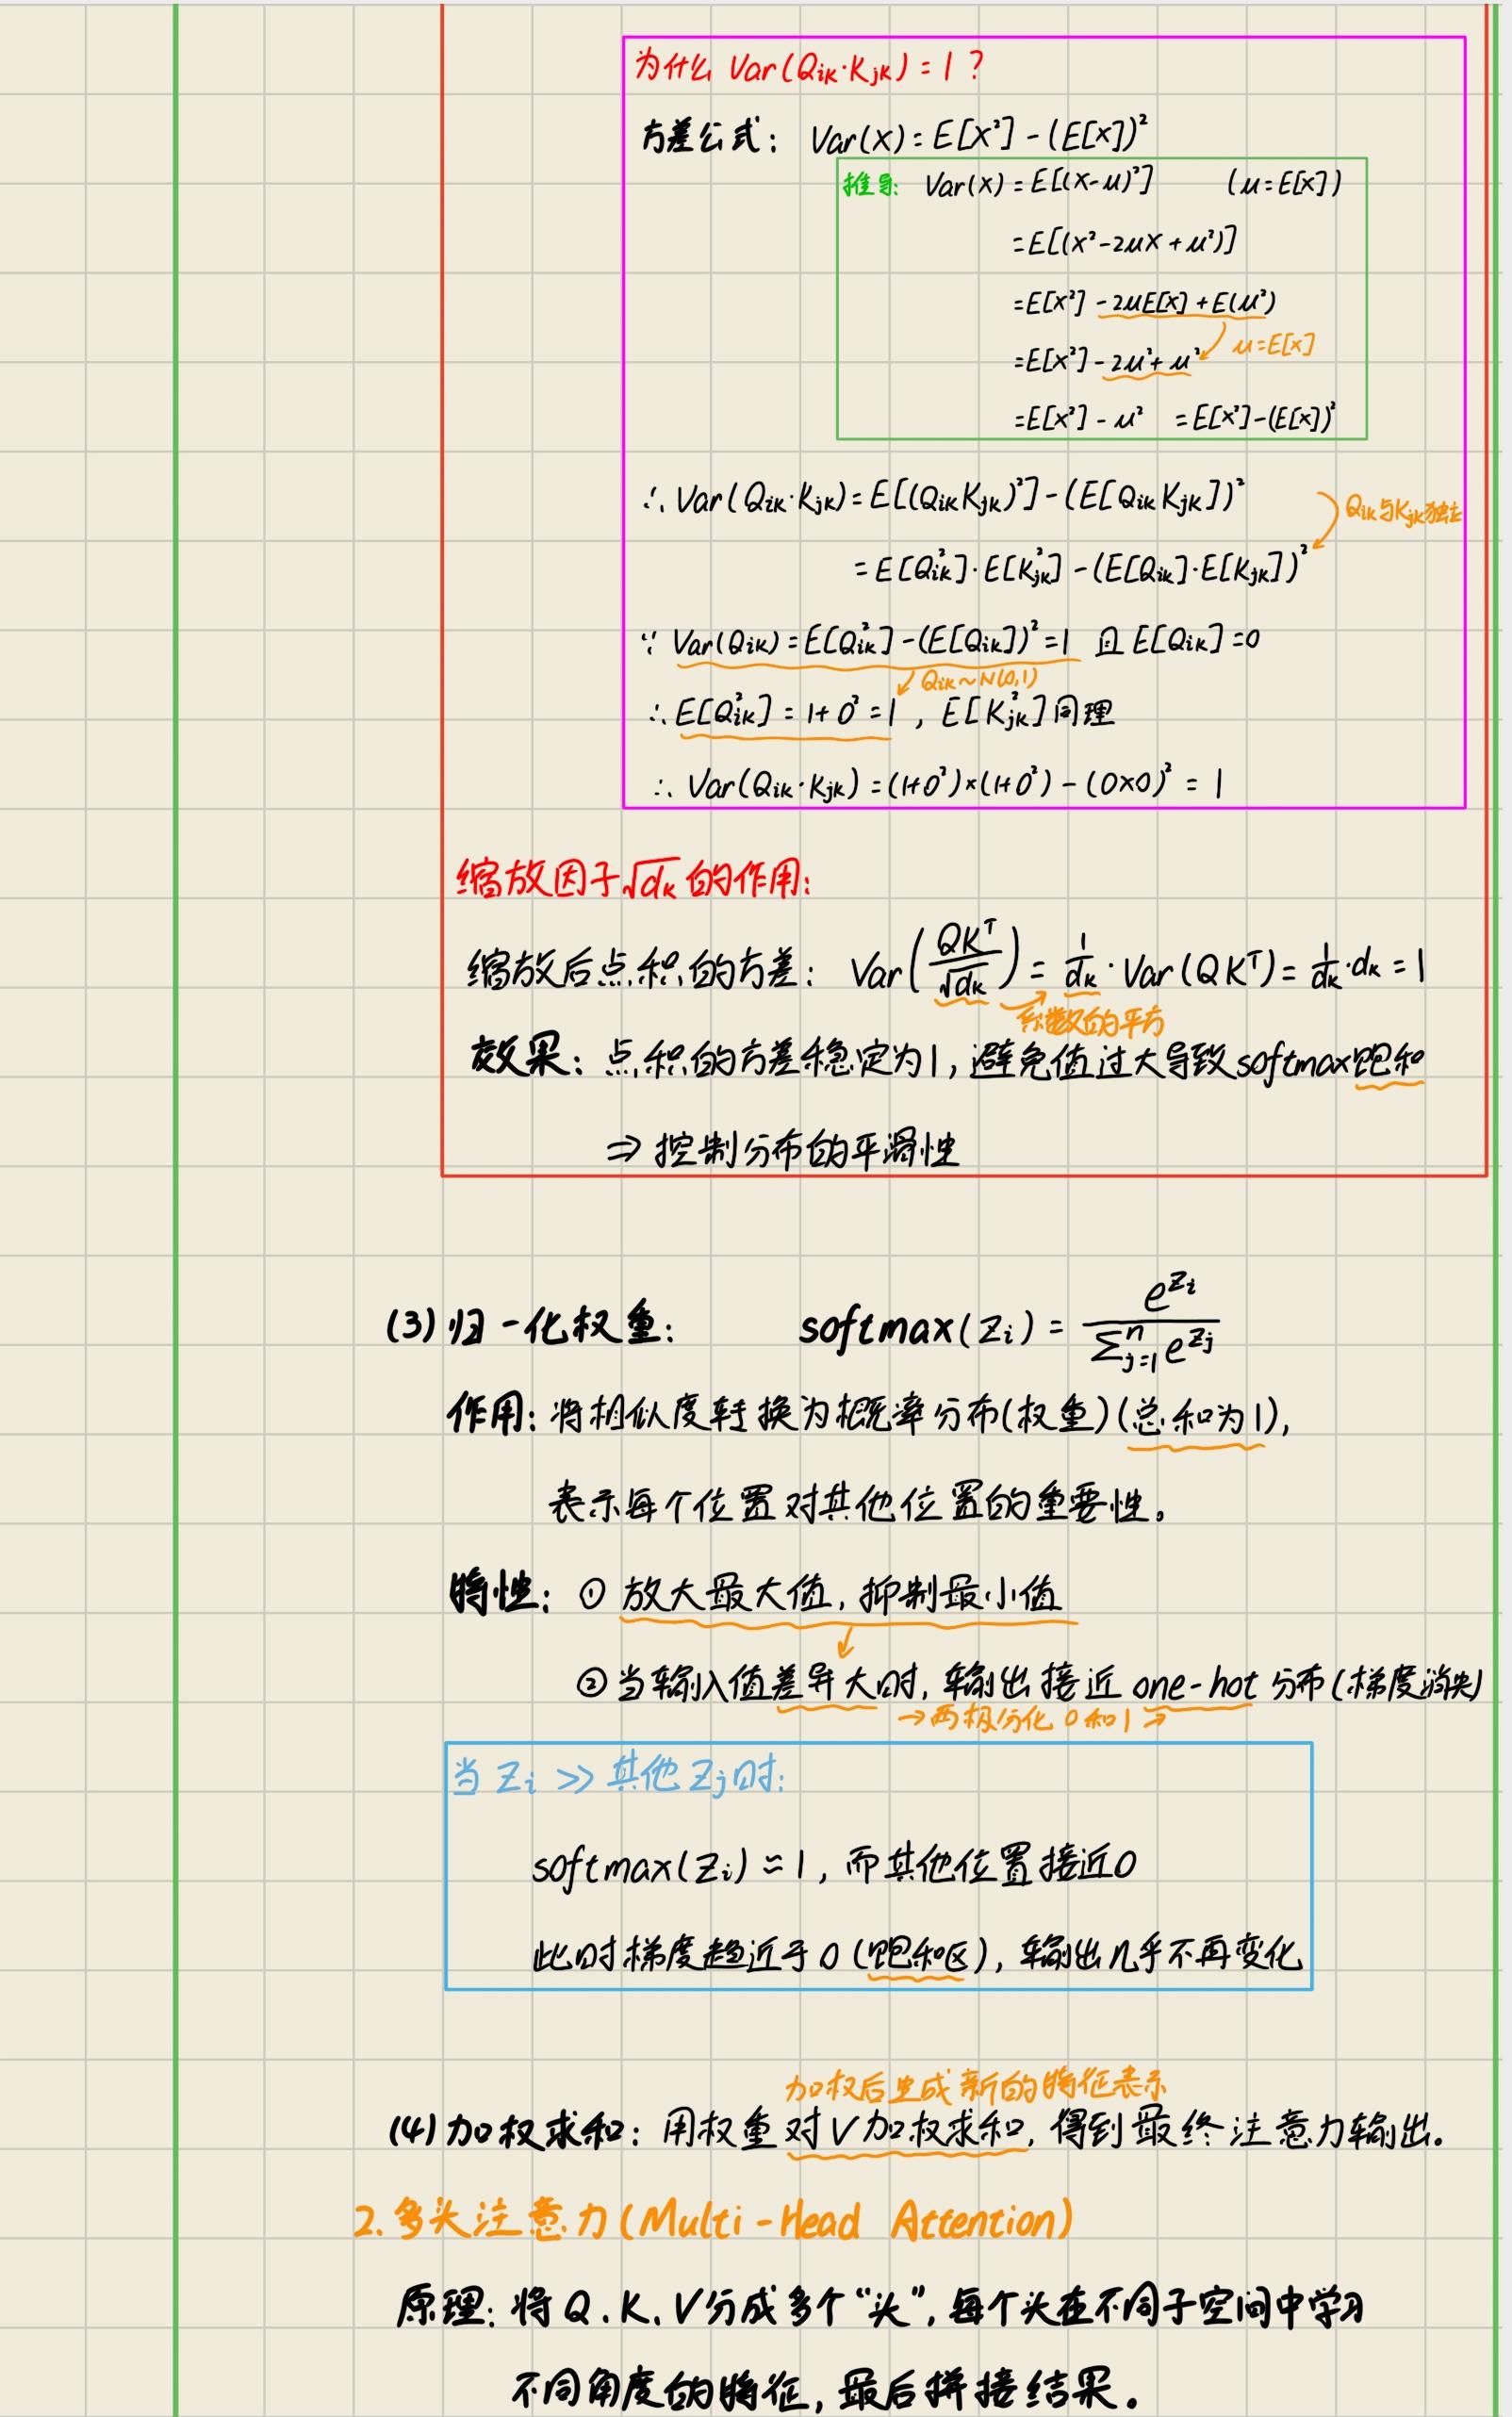 为什么 Var(Qik·Kjk)=1?
方差公式: Var(X)=E[X²]-(E[X])²
推导: Var(X)=E[(X-μ)²] (μ=E[X])
=E[(X²-2μX+μ²)]
=E[X²]-2μE[X]+E(μ²)
μ=E[X]
=E[X²]-2μ²+μ²
=E[X²]-μ² =E[X²]-(E[X])²
∴ Var(Qik·Kjk)=E[(QikKjk)²]-(E[QikKjk])²
Qik与Kjk独立
=E[Qik²]·E[Kjk²]-(E[Qik]·E[Kjk])²
∵ Var(Qik)=E[Qik²]-(E[Qik])²=1 且 E[Qik]=0
Qik~N(0,1)
∴ E[Qik²]=1+0²=1, E[Kjk²]同理
∴ Var(Qik·Kjk)=(1+0²)×(1+0²)-(0×0)²=1
缩放因子√dk的作用:
缩放后点积的方差: Var(QKᵀ/√dk)=1/dk·Var(QKᵀ)=1/dk·dk=1
系数的平方
效果: 点积的方差稳定为1,避免值过大导致softmax饱和
⇒ 控制分布的平滑性
(3)归一化权重: softmax(Zi)=e^Zi/∑ⁿj=1 e^Zj
作用: 将相似度转换为概率分布(权重)(总和为1),
表示每个位置对其他位置的重要性。
特性: ① 放大最大值,抑制最小值
②当输入值差异大时,输出接近one-hot分布(梯度消失)
→两极分化 0和1→
当 Zi >> 其他Zj时:
softmax(Zi)≈1,而其他位置接近0
此时梯度趋近于0(饱和区),输出几乎不再变化
加权后生成新的特征表示
(4)加权求和: 用权重对V加权求和,得到最终注意力输出。
2.多头注意力(Multi-Head Attention)
原理: 将Q、K、V分成多个“头”,每个头在不同子空间中学习
不同角度的特征,最后拼接结果。